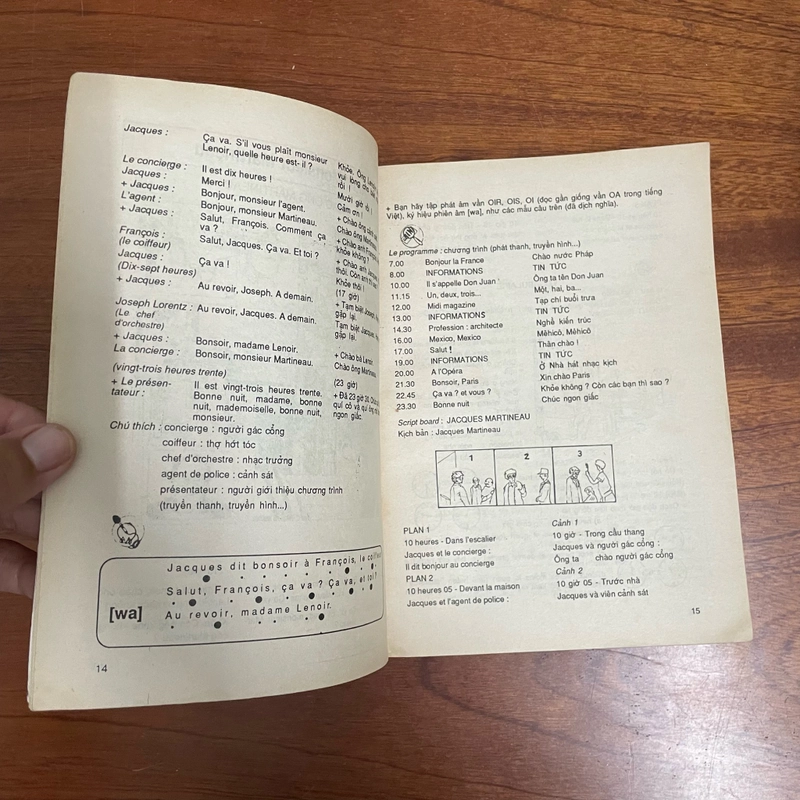 Jacques :
Ça va. S'il vous plaît monsieur
Lenoir, quelle heure est- il ?
Le concierge : Il est dix heures !
Jacques : Merci !
+ Jacques : Bonjour, monsieur l'agent.
L'agent : Bonjour, monsieur Martineau.
+ Jacques : Salut, François. Comment ça
va ?
François : Salut, Jacques. Ça va. Et toi ?
(le coiffeur)
Jacques : Ça va !
(Dix-sept heures)
+ Jacques : Au revoir, Joseph. A demain.
Joseph Lorentz : Au revoir, Jacques. A demain.
(Le chef
d'orchestre)
+ Jacques : Bonsoir, madame Lenoir.
La concierge : Bonsoir, monsieur Martineau.
(vingt-trois heures trente)
+ Le présen- Il est vingt-trois heures trente.
tateur : Bonne nuit, madame, bonne
nuit, mademoiselle, bonne nuit,
monsieur.
Khỏe. Ông
vui lòng cho
rồi !
Mười giờ rồi !
Cảm ơn !
+ Chào ông
Chào ông
+ Chào anh
khỏe không ?
+ Chào anh
thôi. Còn anh
Khỏe thôi !
(17 giờ)
+ Tạm biệt
gặp lại.
Tạm biệt Jacques.
gặp lại.
+ Chào bà Lenoir.
Chào ông
(23 giờ)
+ Đã 23 giờ 30.
quí cô và quí ông
ngon giấc.
Chú thích : concierge : người gác cổng
coiffeur : thợ hớt tóc
chef d'orchestre : nhạc trưởng
agent de police : cảnh sát
présentateur : người giới thiệu chương trình
(truyền thanh, truyền hình...)
Jacques dit bonsoir à François, le
Salut, François, ça va ? Ça va, et toi?
[wa] Au revoir, madame Lenoir.
14
+ Bạn hãy tập phát âm vần OIR, OIS, OI (đọc gần giống vần OA trong tiếng
Việt), ký hiệu phiên âm [wa], như các mẫu câu trên (đã dịch nghĩa).
Le programme : chương trình (phát thanh, truyền hình...)
7.00 Bonjour la France Chào nước Pháp
8.00 INFORMATIONS TIN TỨC
10.00 Il s'appelle Don Juan Ông ta tên Don Juan
11.15 Un, deux, trois... Một, hai, ba...
12.00 Midi magazine Tạp chí buổi trưa
13.00 INFORMATIONS TIN TỨC
14.30 Profession : architecte Nghề kiến trúc
16.00 Mexico, Mexico Mêhicô, Mêhicô
17.00 Salut ! Thân chào !
19.00 INFORMATIONS TIN TỨC
20.00 A l'Opéra Ở Nhà hát nhạc kịch
21.30 Bonsoir, Paris Xin chào Paris
22.45 Ça va ? et vous ? Khỏe không ? Còn các bạn thì sao ?
23.30 Bonne nuit Chúc ngon giấc
Script board : JACQUES MARTINEAU
Kịch bản : Jacques Martineau
1 2 3
PLAN 1 Cảnh 1
10 heures - Dans l'escalier 10 giờ - Trong cầu thang
Jacques et le concierge : Jacques và người gác cổng :
Il dit bonjour au concierge Ông ta chào người gác cổng
PLAN 2 Cảnh 2
10 heures 05 - Devant la maison 10 giờ 05 - Trước nhà
Jacques et l'agent de police : Jacques và viên cảnh sát
15